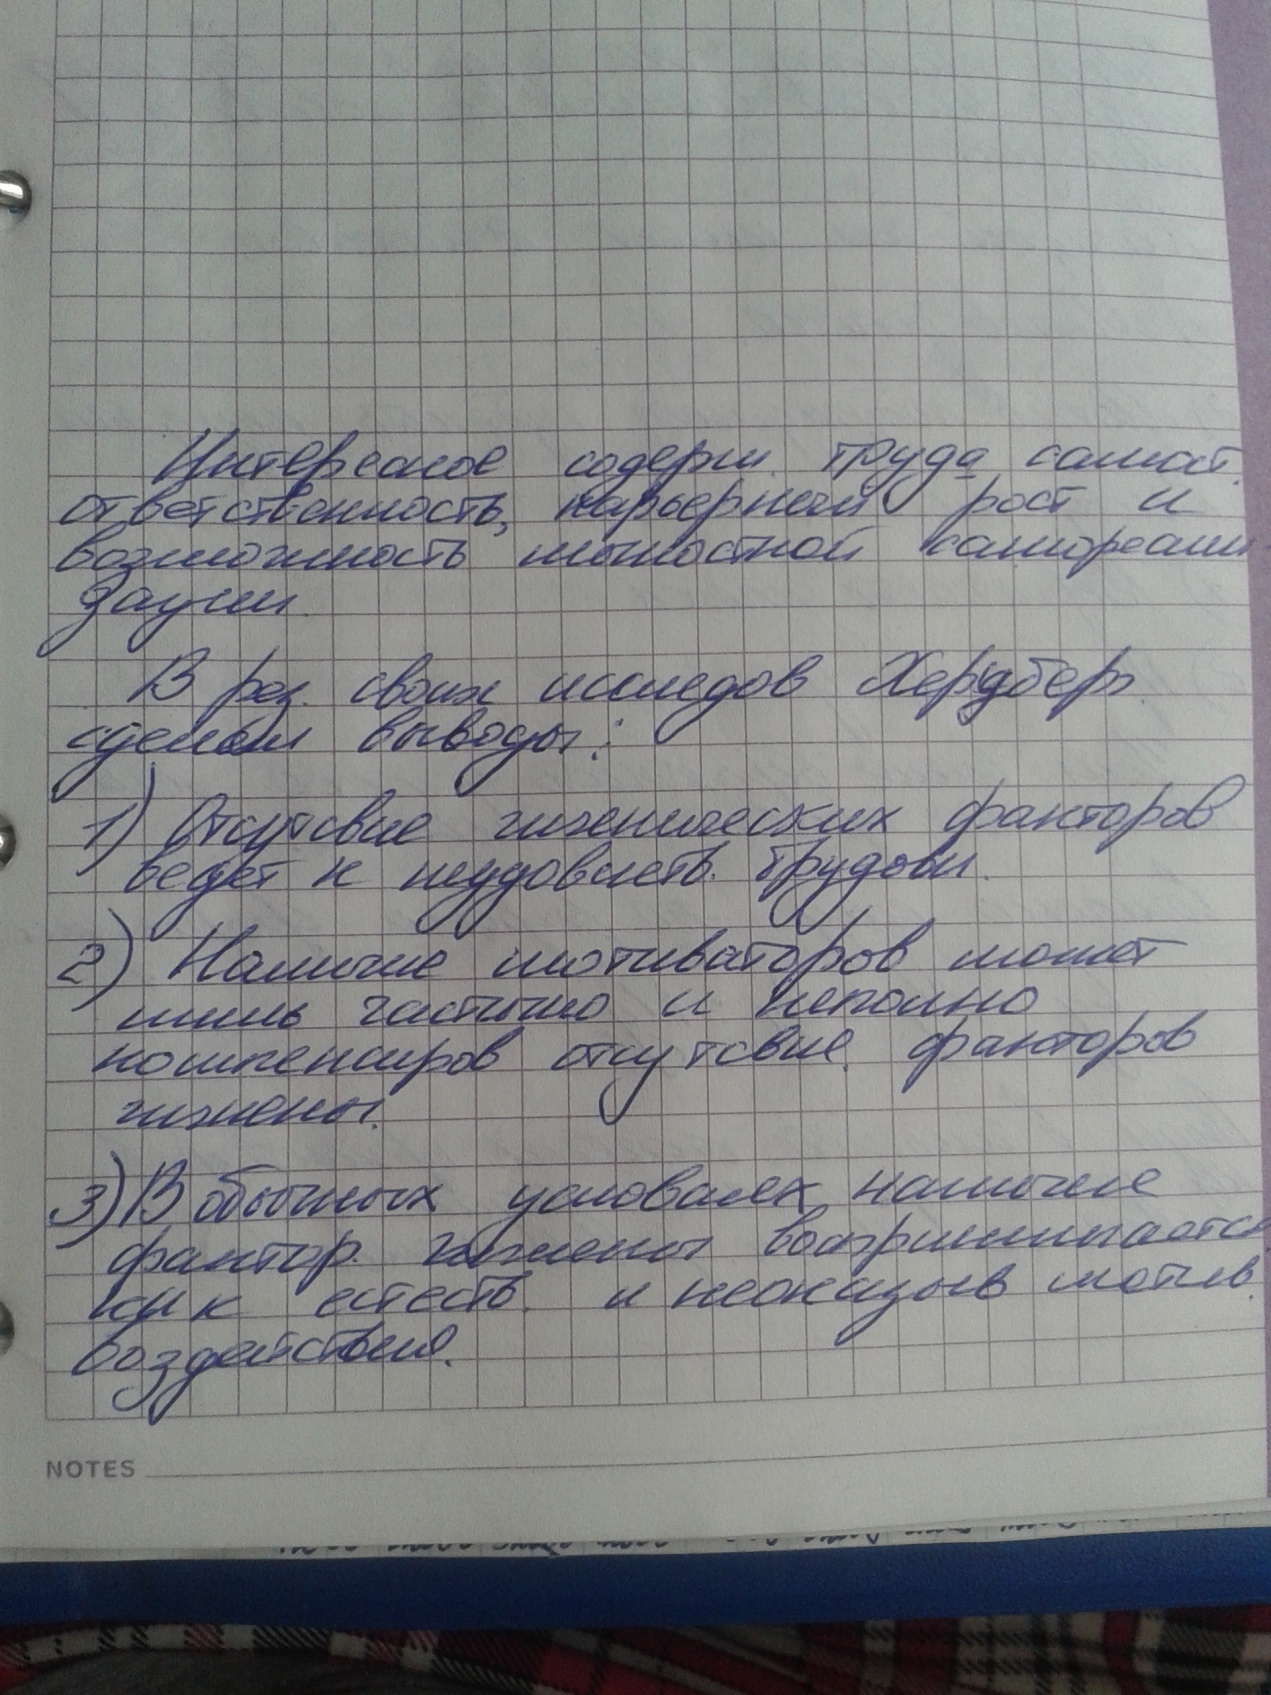 Интересное содерж. труда самост.
ответственность, карьерный рост и
возможность личностной самореали
зации.
В рез. своих исследов Херцберг
сделал выводы:
1) Отсутсвие гигиенических факторов
ведет к неудовлетв. трудом.
2) Наличие мотиваторов может
лишь частично и неполно
компенсиров отсутсвие факторов
гигиены.
3) В обычных условиях наличие
фактор. гигиены воспринимается
как естеств. и неоказыв мотив.
воздействия.
NOTES